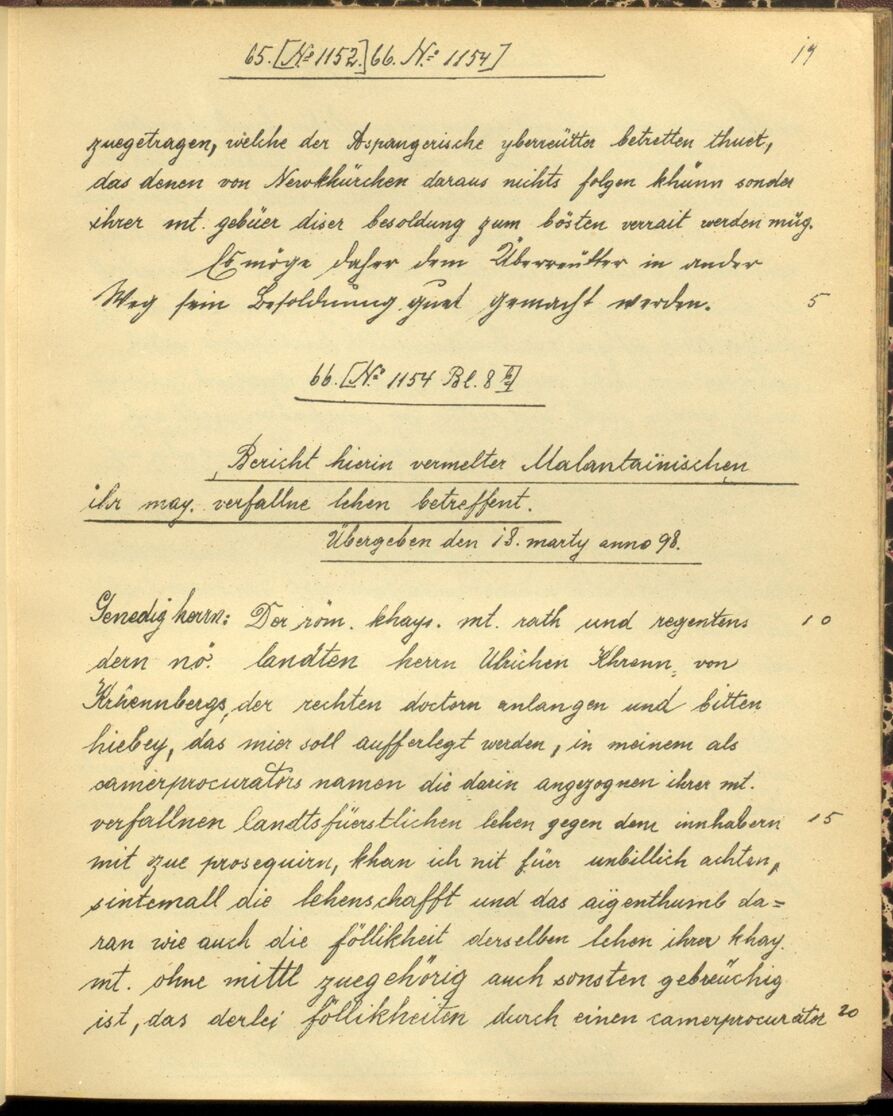 65. [No 1152.] 66. No 1154] 19
zuegetragen, welche der Aspangerische yberreütter betretten thuet,
das denen von Newkhürchen daraus nichts folgen khünn sonder
ihrer mt. gebüer diser besoldung zum bösten verrait werden müg.
Es möge daher dem Überreütter in ander
Weg sein Besoldnung guet gemacht werden. 5
66. [No 1154 Bl. 8
Bericht hierin vermelter Malantainischen
ihr may. verfallne lehen betreffent.
Übergeben den 18. marty anno 98.
Genedig herrn: Der röm. khays. mt. rath und regentens 10
dern nö. landten herrn Ulrichen Khrenn von
Krhennbergs, der rechten doctorn anlangen und bitten
hiebey, das mier soll aufferlegt werden, in meinem als
camerprocurators namen die darin angezognen ihrer mt.
verfallnen landtsfüerstlichen lehen gegen dem innhabern 15
mit zue prosequirn, khan ich nit füer unbillich achten,
sintemall die lehenschafft und das aigenthumb da=
ran wie auch die föllikheit derselben lehen ihrer khay.
mt. ohne mittl zuegehörig auch sonsten gebreüchig
ist, das derlei föllikheiten durch einen camerprocurator 20